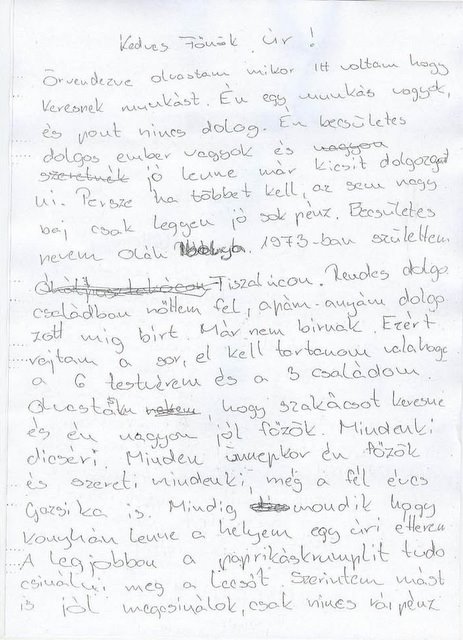 Kedves Főnök úr!
Örvendezve olvastam mikor itt voltam hogy
keresnek munkást. Én egy munkás vagyok,
és pont nincs dolog. Én becsületes
dolgos ember vagyok és nagyon
szeretnék jó lenne már kicsit dolgozgat
ni. Persze ha többet kell, az sem nagy
baj csak leggyen jó sok pénz. Becsületes
nevem Oláh 1973-ban születtem
Tiszalúcon. Rendes dolgo
családban nőttem fel, apám-anyám dolgo
zott míg birt. Már nem birnak. Ezért
rajtam a sor, el kell tartanom valahogy
a 6 testvérem és a 3 családom.
Olvasták nekem, hogy szakácsot keresne
és én nagyon jól főzök. Mindenki
dicséri. Minden ünnepkor én főzök
és szereti mindenki, még a fél éves
Gazsika is. Mindig mondik hogy
konyhán lenne a helyem egy úri étterem
A legjobban a paprikáskrumplit tudo
csinálni meg a lecsót. Szerintem mást
is jól megcsinálok, csak nincs rá pénz